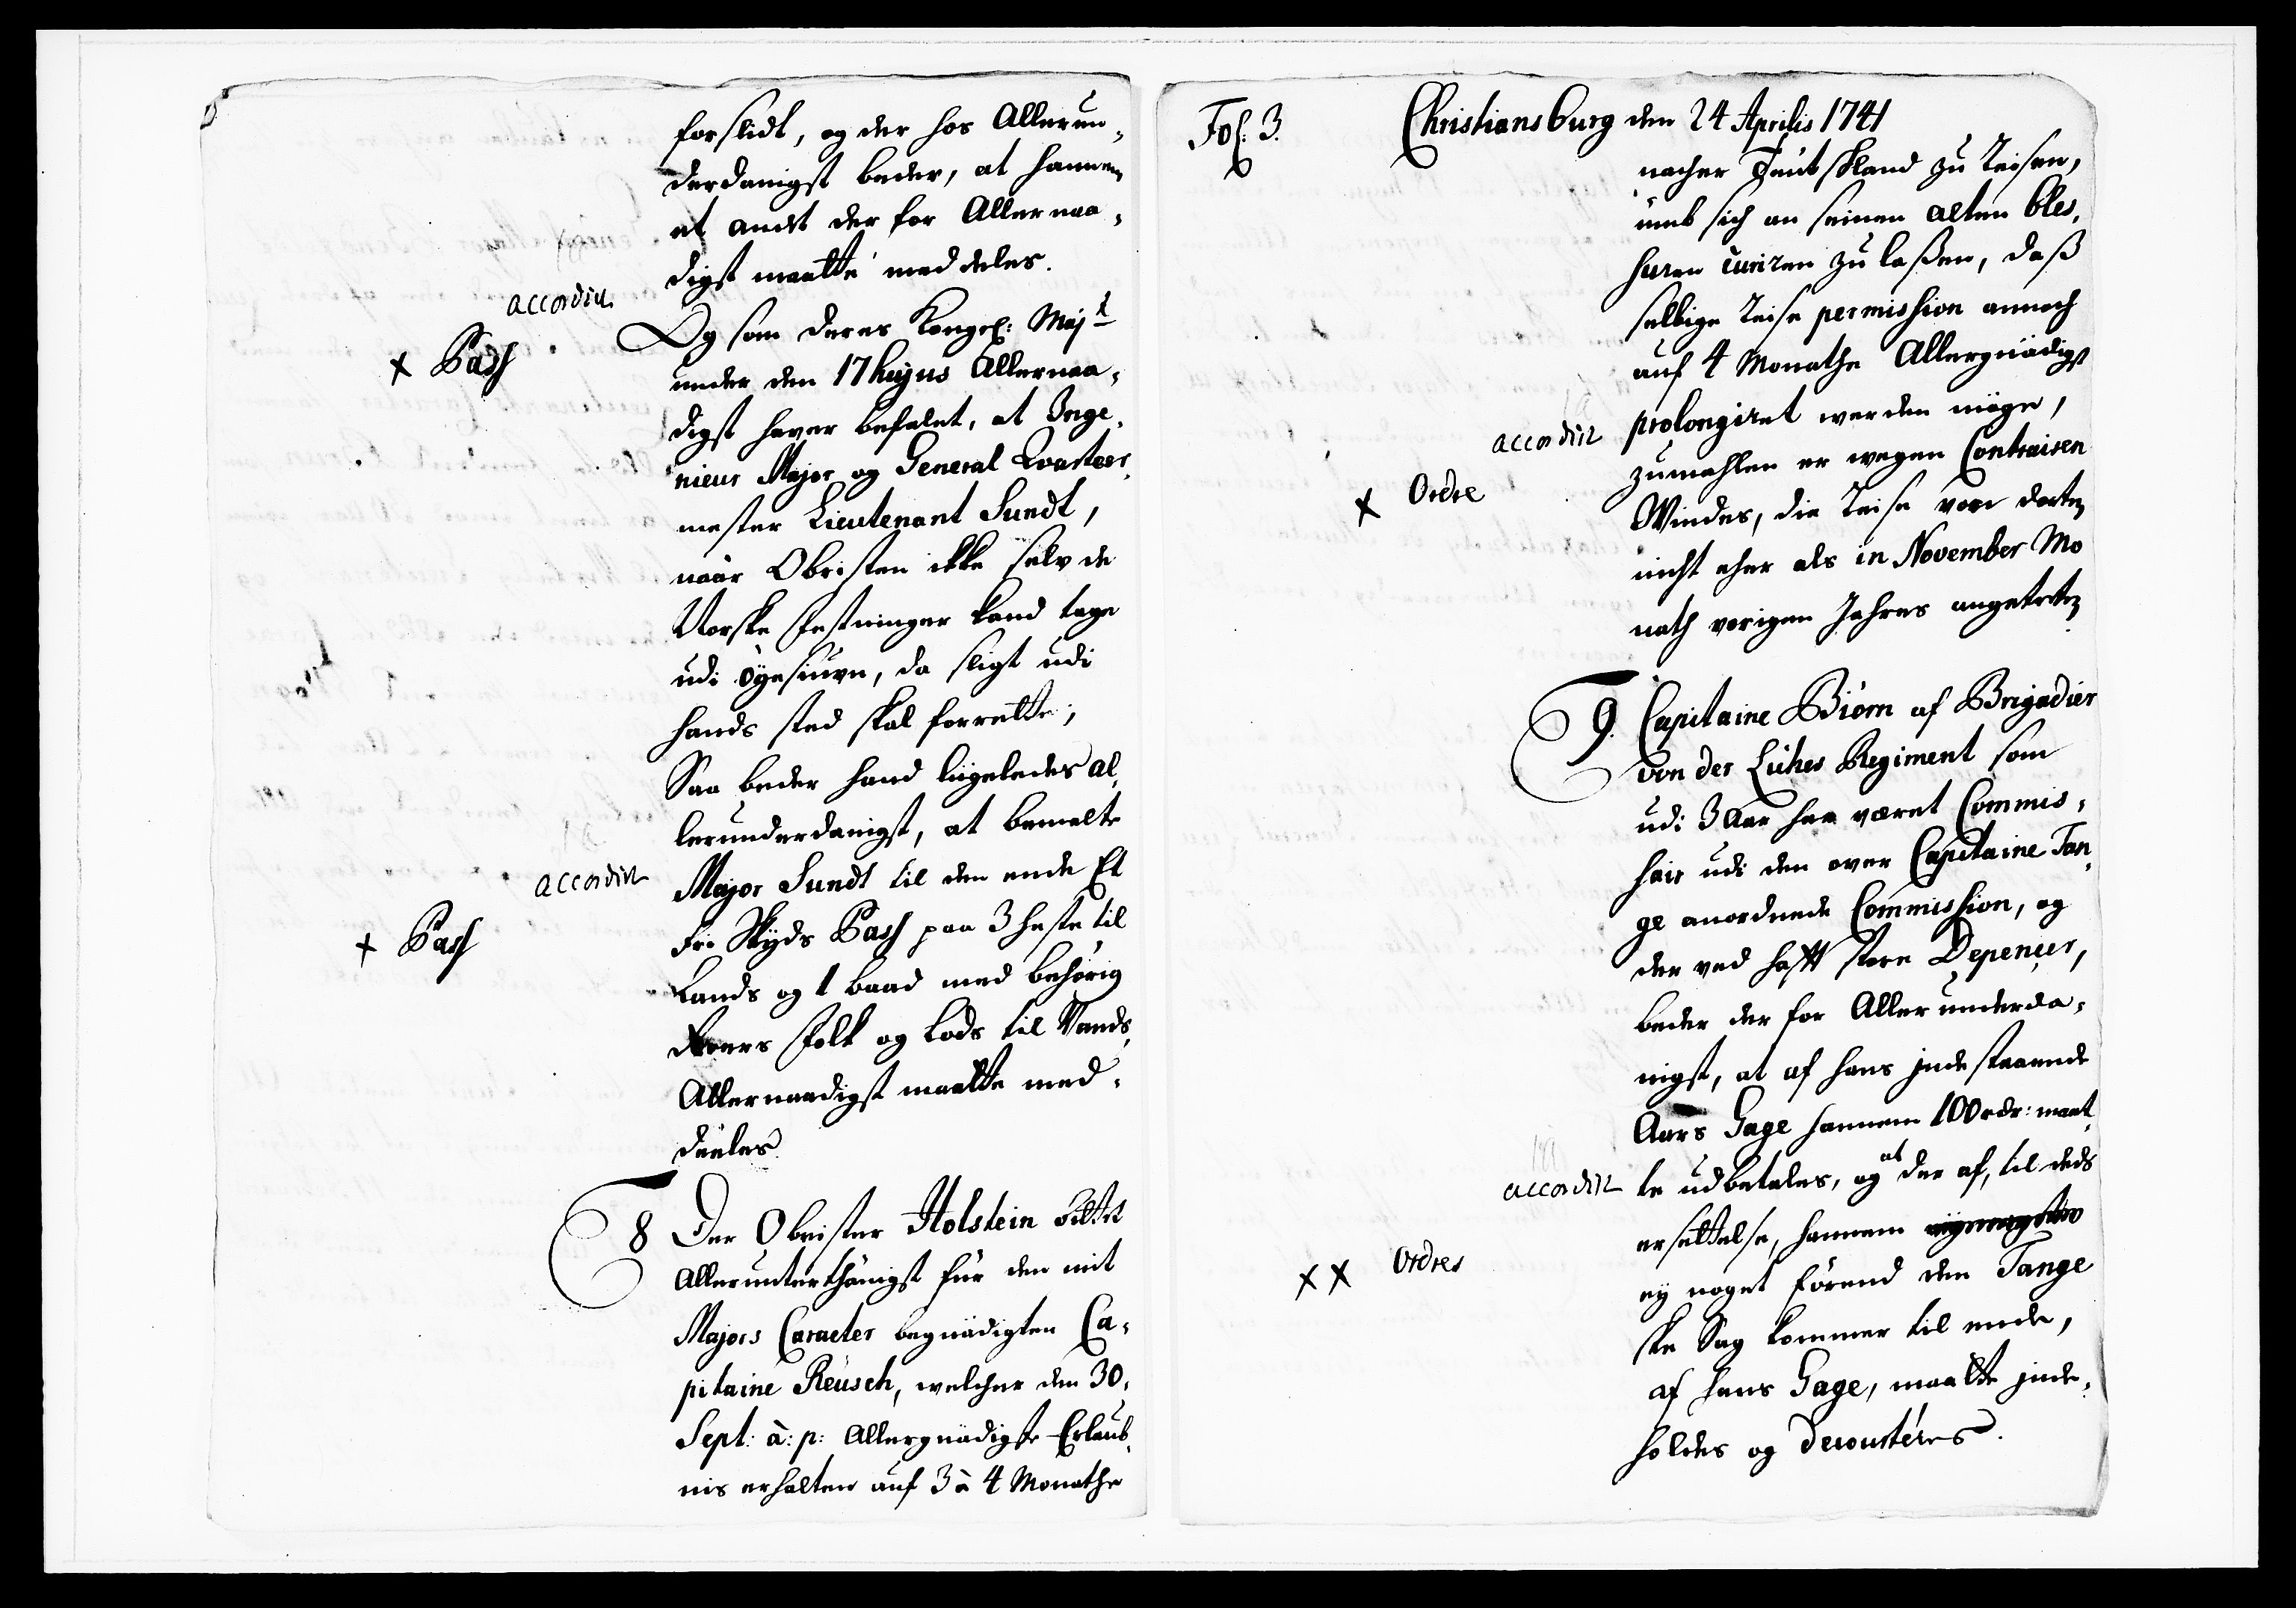 forslidt, og der hos Allerun-
derdanigst beder, at hannem
et andt der for Allernaa-
digst maatte meddeles.
accordirt
Og som Deres Kongel: Majt
× Pass
under den 17 hujus Allernaa-
digst haver befalet, at Inge-
nieur Major og General Qvarteer-
mester Lieutenant Sundt,
naar Obristen ikke selv de
Norske Festninger kand tage
udi øyesiuvn, da sligt udi
hands sted skal forrette;
Saa beder hand liigeledes al-
lerunderdanigst, at bemelte
accordirt
Major Sundt til den ende Et
frie Skyds Pass paa 3 heste til
× Pass
Lands og 1 baad med behørig
Roers folk og Lods til Vands,
Allernaadigst maatte med-
deeles.
8 Der Obrister Holstein bittet
Allerunterthänigst für den mit
Majors Caracter begnädigten Ca-
pitaine Reusch, welcher den 30.
Sept: à: p: Allergnädigste Erlaub-
nis erhalten auf 3 à 4 Monathe
Fol: 3.
Christiansburg den 24 Aprilis 1741
nacher Teutskland zu reisen,
umb sich an seinen alten bles-
suren curiren zu laßen, daß
selbige reise permission annoch
auf 4 Monathe Allergnädigst
prolongiret werden möge,
accordirt
zumahlen er wegen Contrairen
× Ordre
Windes, die reise von dorten
nicht eher als in November Mo
nath vorigen Jahres angetreten
9. Capitaine Biörn af Brigadier
von der Lühes Regiment som
udi 3 Aar har været Commis-
hair udi den over Capitaine Tan-
ge anordnede Commission, og
der ved hafft store Depencer,
beder der for Allerunderda-
nigst, at af hans indestaaende
Aars Gage hannem 100 rdr: maat-
te udbetales, og at der af, til deds
accordirt
erstattelse, hannem
×× Ordres
ey noget førend den Tange
ske Sag kommer til ende,
af hans Gage, maatte inde-
holdes og decourtéres.